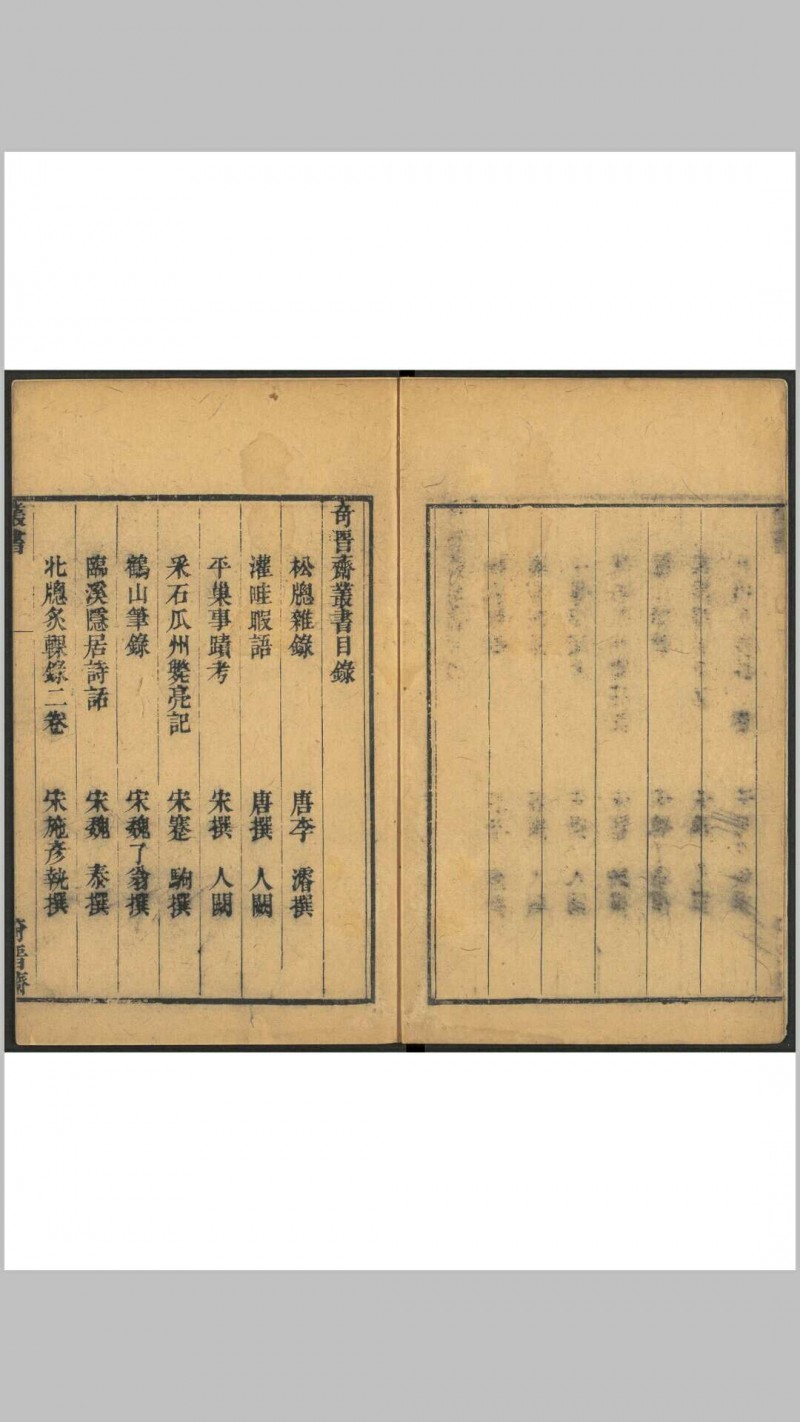 奇晉齋叢書目錄
松牕雜錄 唐李濬撰
灌畦暇語 唐撰人闕
平巢事蹟考 宋撰人闕
采石瓜州斃亮記 宋蹇駒撰
鶴山筆錄 宋魏了翁撰
臨溪隱居詩話 宋魏泰撰
北牕炙輠錄二卷 宋施彥執撰
叢書 奇晉齋